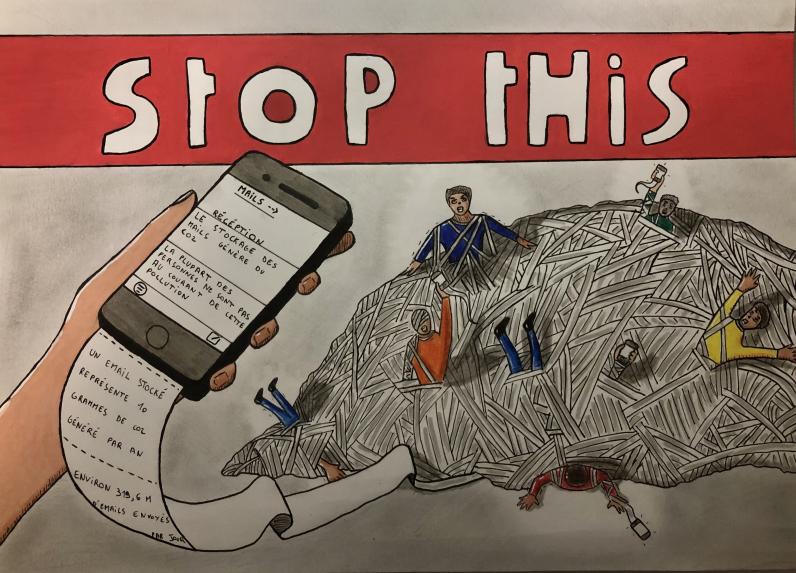 STOP THIS
MAILS -->
RÉCÉPTION
LE STOCKAGE DES
MAILS GÉNÈRE DU
CO2
LA PLUPART DES
PERSONNES NE SONT PAS
AU COURANT DE CETTE
POLLUTION
UN EMAIL STOCKÉ
REPRÉSENTE 10
GRAMMES DE CO2
GÉNÉRÉ PAR AN
ENVIRON 319,6 M
D'EMAILS ENVOYÉS
PAR JOUR